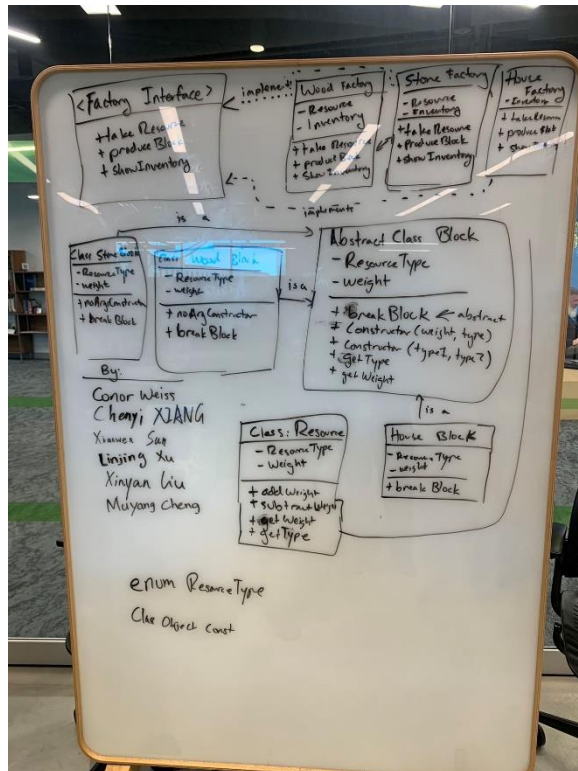 <Factory Interface>
+ take Resource
+ produce Block
+ showInventory
implements
Wood Factory
- Resource
- Inventory
+ take Resource
+ produce Block
+ Show Inventory
Stone Factory
- Resource
- Inventory
+ take Resource
+ produce Block
+ show Inventory
House
Factory
- Inventory
+ take Resource
+ produce Block
+ show
implements
is a
Class Stone Block
- ResourceType
- weight
+ noArgConstructor
+ break Block
Class Wood Block
- ResourceType
- weight
+ noArgConstructor
+ break Block
is a
Abstract Class Block
- Resource Type
- weight
+ break Block ← abstract
+ Constructor (weight, type)
+ Constructor (type1, type2)
+ get Type
+ get Weight
is a
By:
Conor Weiss
Chenyi XIANG
Sun
Linjing Xu
Xinyan Liu
Muyang Cheng
Class: Resource
- ResourceType
- Weight
+ add Weight
+ subtract Weight
+ get Weight
+ getType
House Block
- ResourceType
- weight
+ break Block
enum ResourceType
Class Object Const